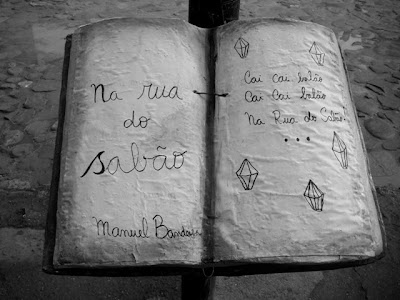 Na rua
do
sabão
Manuel Bandeira
Cai cai balão
Cai Cai balão
Na Rua do Sabão!
...